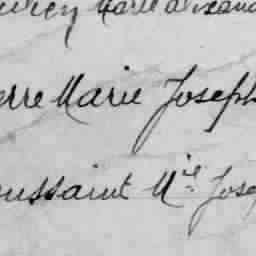 Marie Alexand
erre Marie Joseph
oussaint M^ie Jose